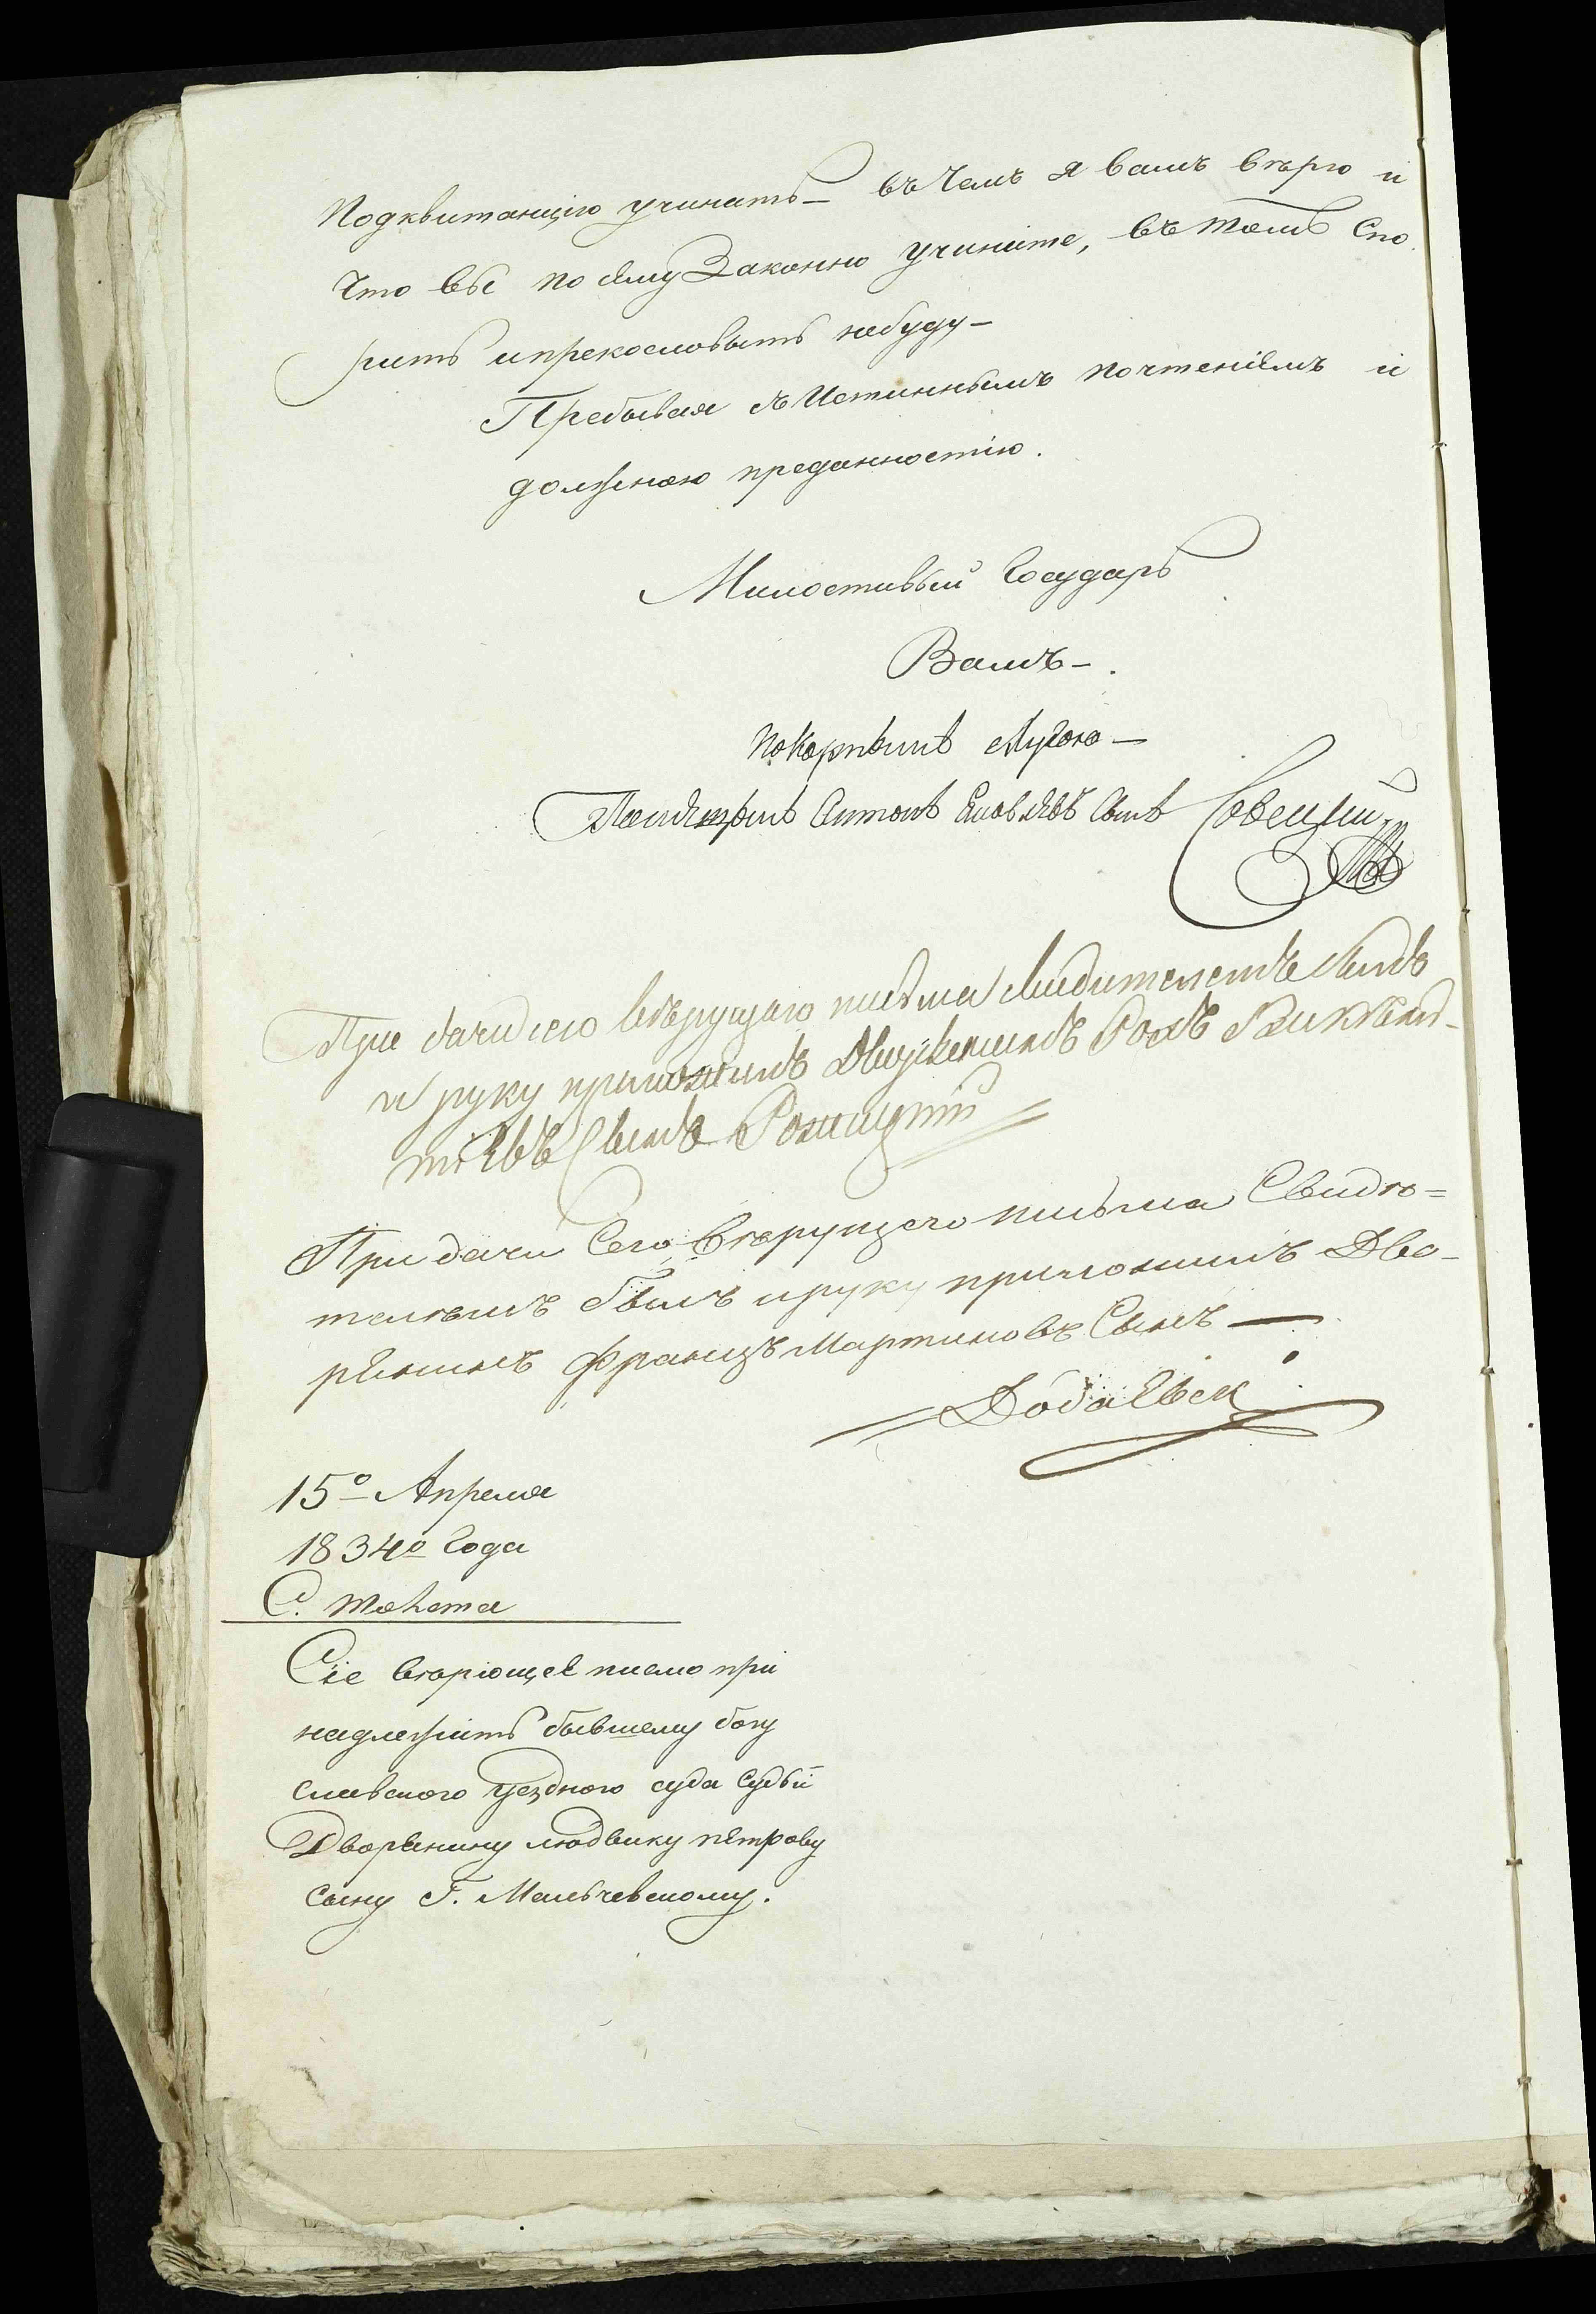 Подквитанцію учинить — въ чемъ я вамъ вѣрю и
что вы по сему Законно учините, въ томъ спо
рить ипрекословить небуду —
Пребывая съ Истиннымъ почтеніемъ и
должною преданностію.
Милостивый Государь
Вамъ —.
покорнымъ слугою —
Антонъ сынъ
При дачи сего вѣрующаго письма свидителемъ былъ
и руку приложилъ Рохъ
сынъ
При дачи Сего Вѣрующего письма Свидѣ=
телѣмъ былъ ируку приложилъ Дво-
рѣнинъ Францъ Мартиновъ Сынъ —
15º Апреля
1834º Года
С. Тохота
Сіе вѣрющее писмо при
надлежитъ бывшему богу
славского уездного суда судьи
Дворѣнину людвику петрову
сыну Г. Мальчевскому.